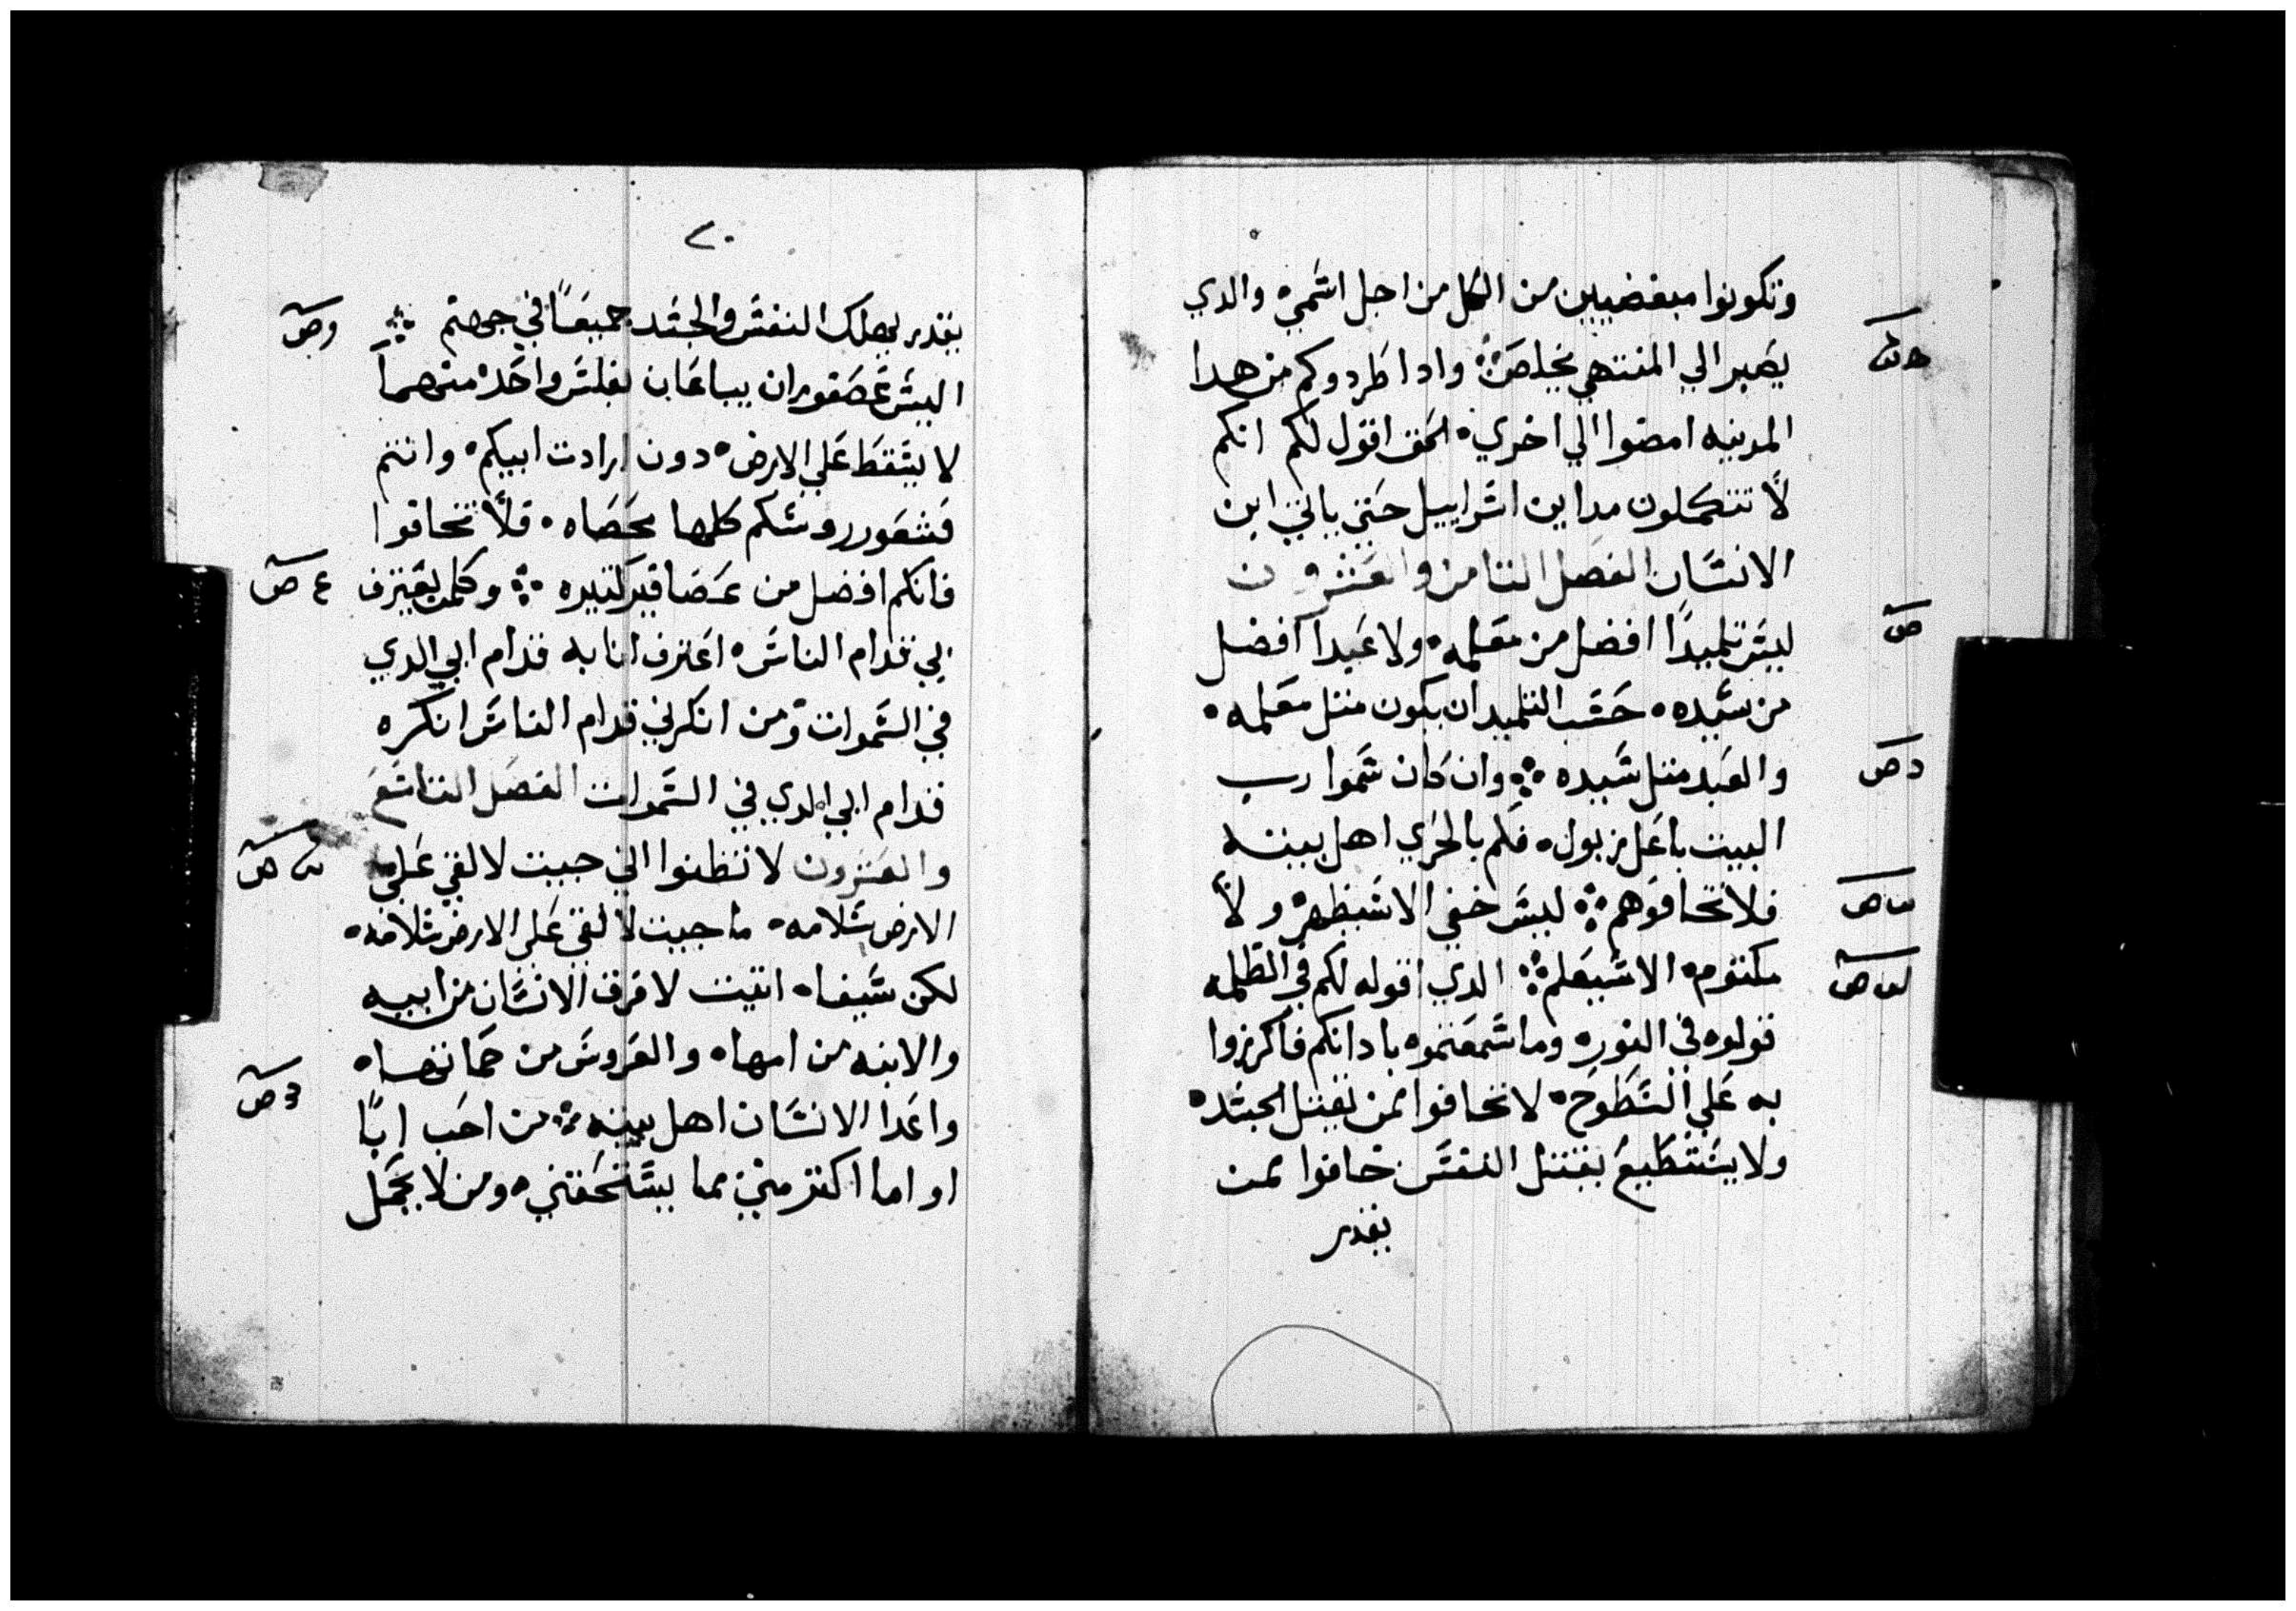 وتكونوا مبغضيين من الكل من اجل اسمي ٥ والدي
يصير الي المنتهي يخلص ܀ وادا طردوكم من هدا
المدينه امضوا الي اخري ٥ الحق اقول لكم انكم
لا تتكملون مداين اسراييل حتي ياتي ابن
الانسان الفصل التامن والعشرون
ليس تلميدًا افضل من معلمه ٥ ولا عبدا افضل
من سيده ٥ حسب التلميد ان يكون متل معلمه ٥
والعبد متل سيده ܀ وان كان سموا رب
البيت باعل زبول ٥ فكم بالحري اهل بيته
فلا تخافوهم ܀ ليس خفي الا سيظهر ٥ ولا
مكتوم ٥ الا سيعلم ܀ الدي اقوله لكم في الظلمه
قولوه في النور ٥ وما سمعتموه بادانكم فاكرزوا
به علي السطوح ٥ لا تخافوا ممن يقتل الجسد ٥
ولا يستطيع يقتل النفس خافوا ممن
يقدر
٢٠
يقدر يهلك النفس والجسد جميعًا في جهنم ܀
اليس عصفوران يباعان بفلس واحد ٥ منهما
لا يسقط علي الارض ٥ دون ارادت ابيكم ٥ وانتم
فشعور روسكم كلها محصاه ٥ فلا تخافوا
فانكم افضل من عصافير كتيره ܀ وكلمن يعترف
بي قدام الناس ٥ اعترف انا به قدام ابي الدي
في السموات ٥ ومن انكرني قدام الناس انكره
قدام ابي الدي في السموات الفصل التاسع
والعشرون لا تظنوا اني جييت لالقي علي
الارض سلامه ٥ ما جييت لالقي علي الارض سلامه ٥
لكن سيفا ٥ اتيت لافرق الانسان من ابيه
والابنه من امها ٥ والعروس من حماتها ٥
واعدا الانسان اهل بيته ܀ من احب ابًا
او اما اكتر مني ٥ مما يستحقني ٥ ومن لا يحمل